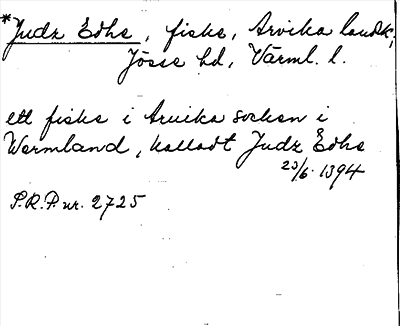 *Judz Edhe, fiske, Arvika landsk,
Jösse hd, Värml. l.
ett fiske i Arvika socken i
Wermland, kalladt Judz Edhe
23/6 1394
P.R.P. nr. 2725